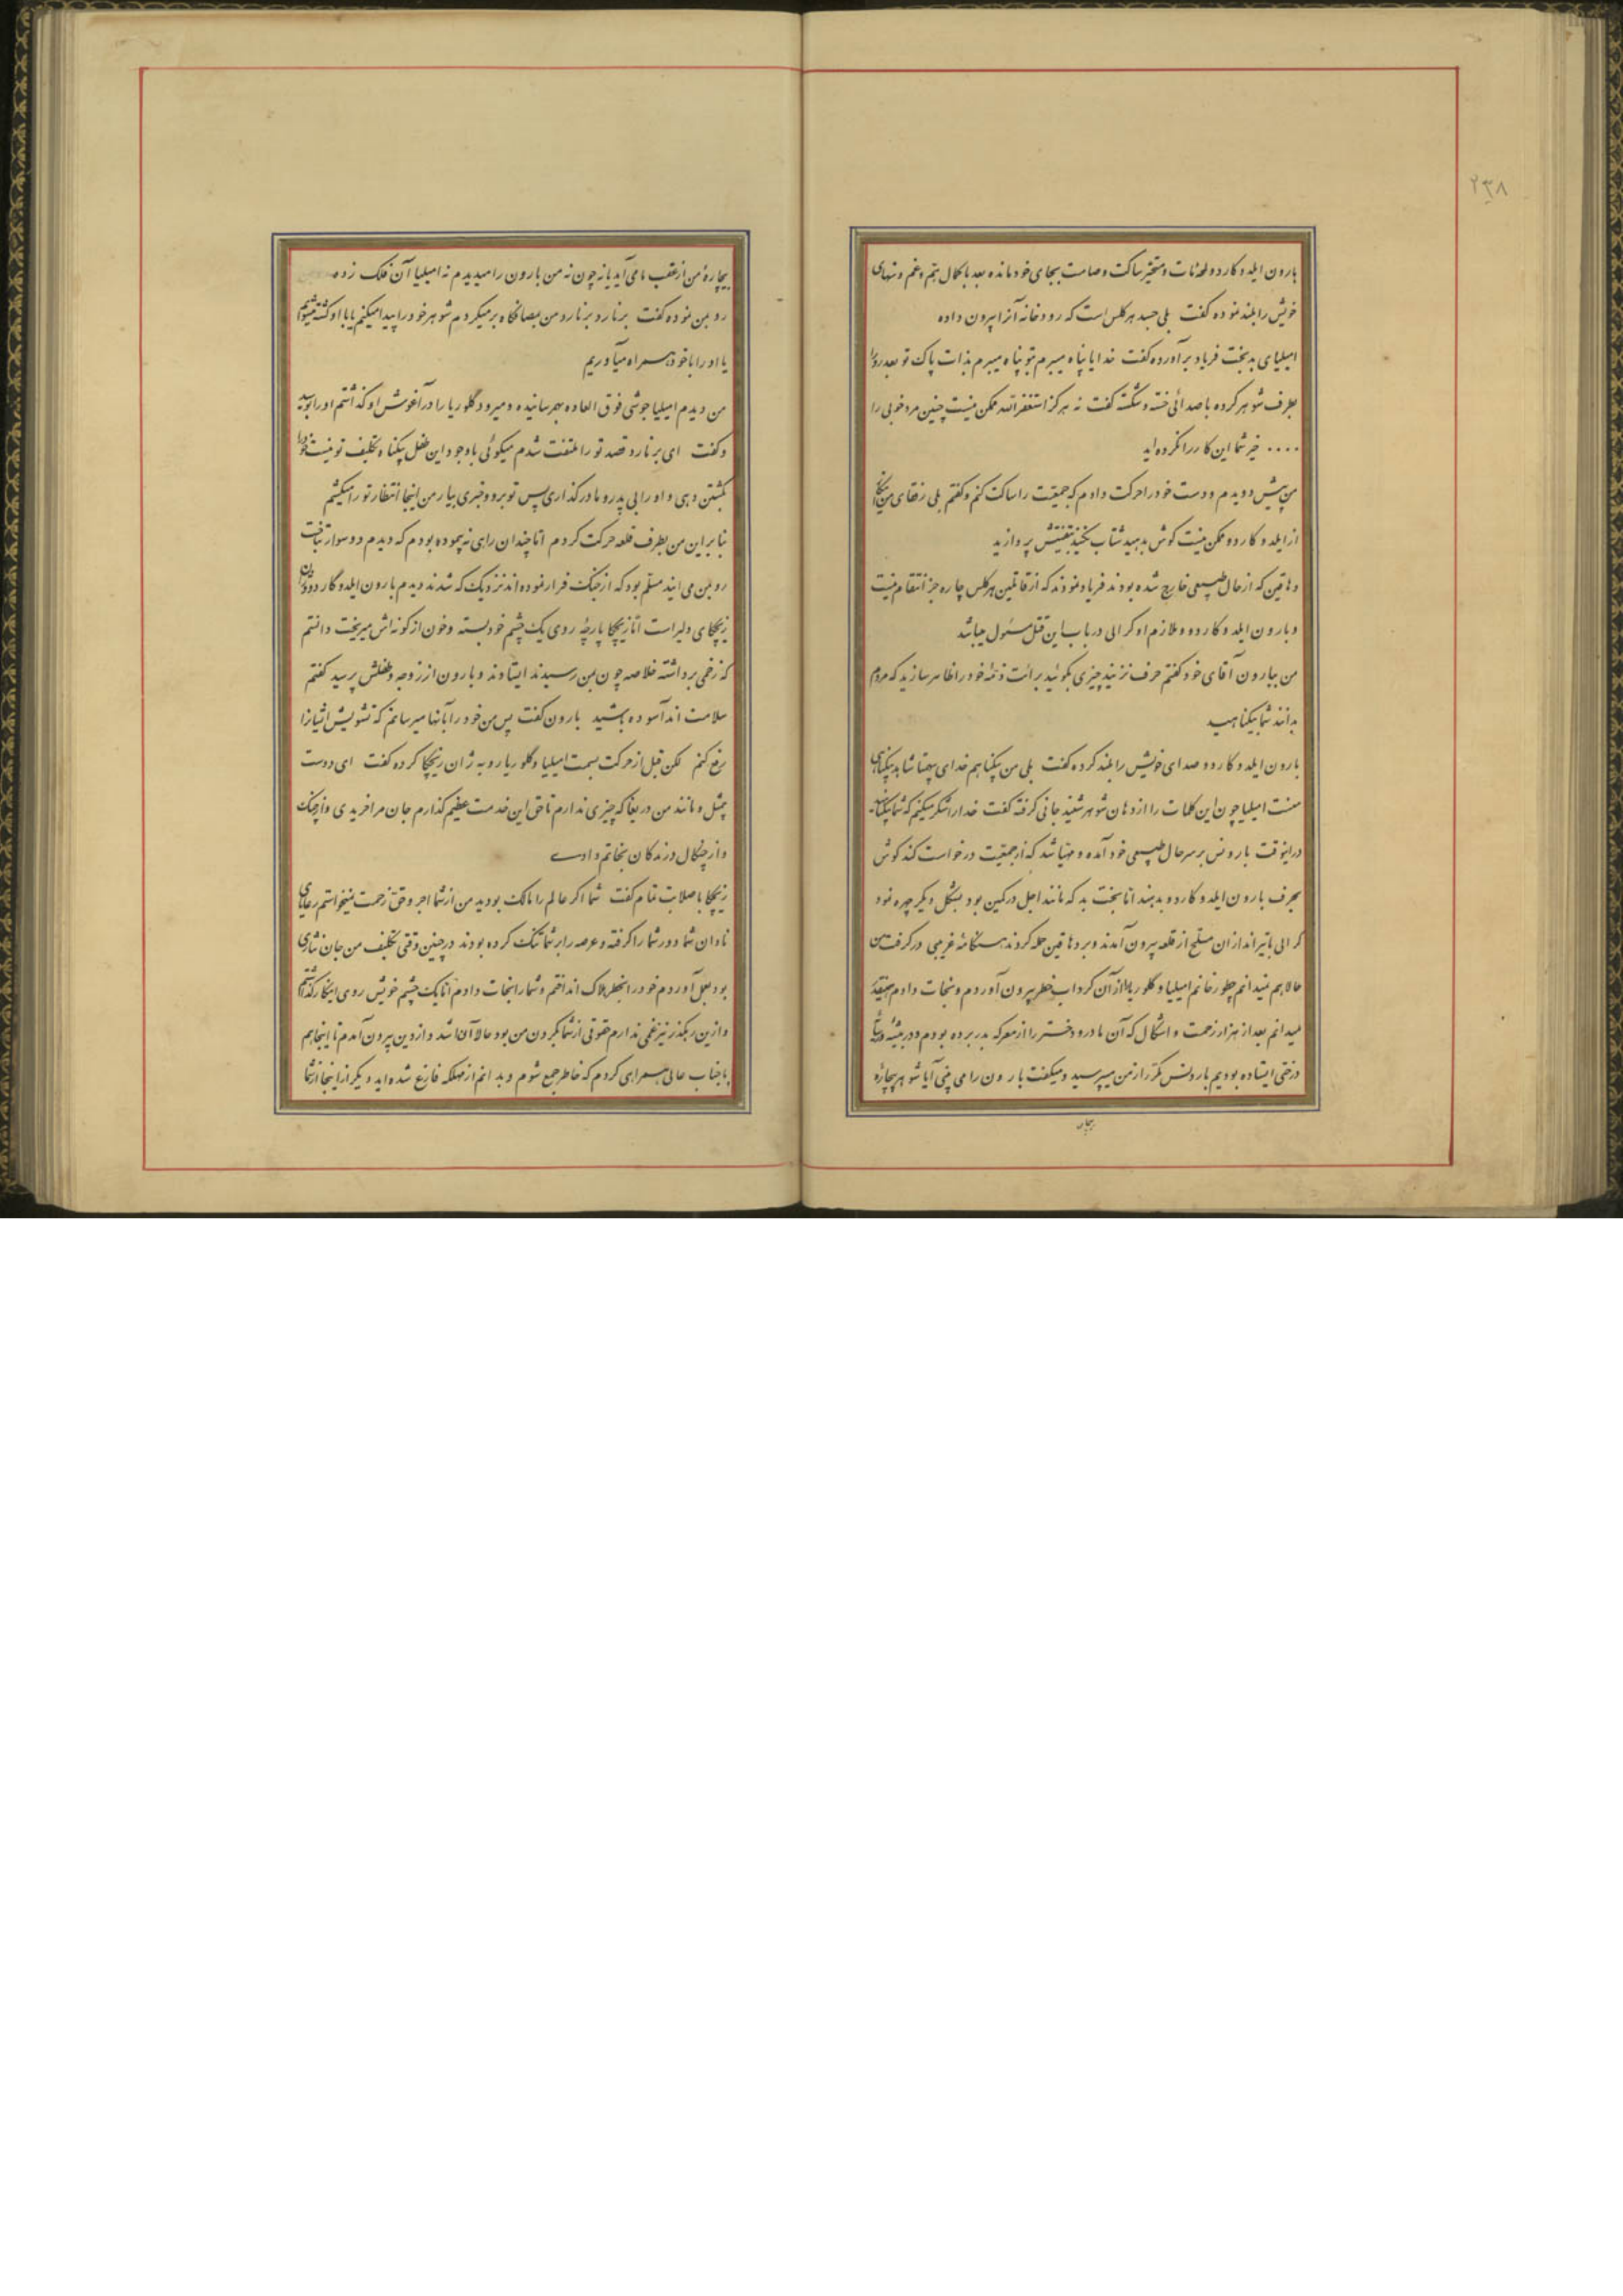 ۲۳۸
بارون ایلد و کاردو لحه مات و متحیر ساکت و صامت بجای خود مانده بعد با کمال هم و غم و منهای
خویش را بلند نموده گفت بلی جسد هرکلس است که رودخانه آنرا بیرون داده
امیلیای بدبخت فریاد برآورده گفت خدایا پناه میبرم بتو پناه میبرم بذات پاک تو بعد رو را
بطرف شوهر کرده با صدائی خسته و شکسته گفت نه هرگز استغفرالله ممکن نیست چنین مرد خوبی را
.... خیر شما این کار را نکرده اید
من پیش دویدم و دست خود را حرکت دادم که جمعیت را ساکت کنم و گفتم بلی رفقای من اینکار
از ایلد و کاردو ممکن نیست گوش بدهید شتاب نکنید بتفتیش پردازید
دهاقین که از حال طبیعی خارج شده بودند فریاد نمودند که از قاتلین هرکلس چاره جز انتقام نیست
و بارون ایلد و کاردو و ملازم او کرالی در باب این قتل مسئول میباشد
من ببارون آقای خود گفتم حرف بزنید چیزی بگوئید برائت ذمه خود را ظاهر سازید که مردم
بدانند شما بیگناهید
بارون ایلد و کاردو صدای خویش را بلند کرده گفت بلی من بیگناهم خدای بیهمتا شاهد بیگناهی
منست امیلیا چون این کلمات را از دهان شوهر شنید جانی گرفته گفت خدا را شکر میکنم که شما بیگناهید
در اینوقت بارونس بر سر حال طبیعی خود آمده و مهیا شد که از جمعیت درخواست کند گوش
بحرف بارون ایلد و کاردو بدهند اما بخت بد که مانند اجل در کمین بود بشکل دیگر چهره نمود
کرالی با تیراندازان مسلح از قلعه بیرون آمدند و بر دهاقین حمله کردند هنگامه غریبی در گرفت من
حالا هم نمیدانم چطور خانم امیلیا و گلوریا را از آن گرداب خطر بیرون آوردم و نجات دادم همینقدر
میدانم بعد از هزار زحمت و اشکال که آن مادر و دختر را از معرکه بدر برده بودم و در بیشه و پشت
درختی ایستاده بودیم بارونس مکرر از من میپرسید و میگفت بارون را می بینی آیا شوهر بیچاره
بیچاره
بیچاره من از عقب ما می آید یا نه چون نه من بارون را میدیدم نه امیلیا آن فلک زده
رو بمن نموده گفت برنارد برنارد من بهمانگاه برمیگردم شوهر خود را پیدا میکنم یا با او کشته میشوم
یا او را با خود همراه میآوریم
من دیدم امیلیا جوشی فوق العاده بهم رسانیده و میرود گلوریا را در آغوش او گذاشتم او را بوسید
و گفت ای برنارد قصد تو را ملتفت شدم میگوئی با وجود این طفل بیگناه تکلیف تو نیست خود را
بکشتن دهی و او را بی پدر و مادر گذاری پس تو برو و خبری بیار من اینجا انتظار تو را میکشم
بنابراین من بطرف قلعه حرکت کردم اما چندان راهی نه پیموده بودم که دیدم دو سوار بتاخت
رو بمن می ایند مسلم بود که از جنگ فرار نموده اند نزدیک که شدند دیدم بارون ایلد و کاردو و ژان
زیچکای دلیر است اما زیچکا پارچه روی یک چشم خود بسته و خون از گونه اش میریخت دانستم
که زخمی برداشته خلاصه چون بمن رسیدند ایستادند و بارون از زوجه و طفلش پرسید گفتم
سلامت اند آسوده باشید بارون گفت پس من خود را بآنها میرسانم که تشویش ایشانرا
رفع کنم لکن قبل از حرکت بسمت امیلیا و گلوریا رو به ژان زیچکا کرده گفت ای دوست
بیمثل و مانند من دریغا که چیزی ندارم تا حق این خدمت عظیم گذارم جان مرا خریدی و از چنگ
و از چنگال درندگان نجاتم دادی
زیچکا با صلابت تمام گفت شما اگر عالم را مالک بودید من از شما اجر و حق زحمت نمیخواستم رعایای
نادان شما دور شما را گرفته و عرصه را بر شما تنگ کرده بودند در چنین وقتی تکلیف من جان نثاری
بود بعمل آوردم خود را بخطر هلاک انداختم و شما را نجات دادم اما یک چشم خویش روی اینکار گذاشتم
و ازین رهگذر نیز غمی ندارم حقوقی از شما بگردن من بود حالا آن ادا شد و از دین بیرون آمدم تا اینجا هم
با جناب عالی همراهی کردم که خاطر جمع شوم و بدانم از مهلکه فارغ شده اید دیگر از اینجا از شما